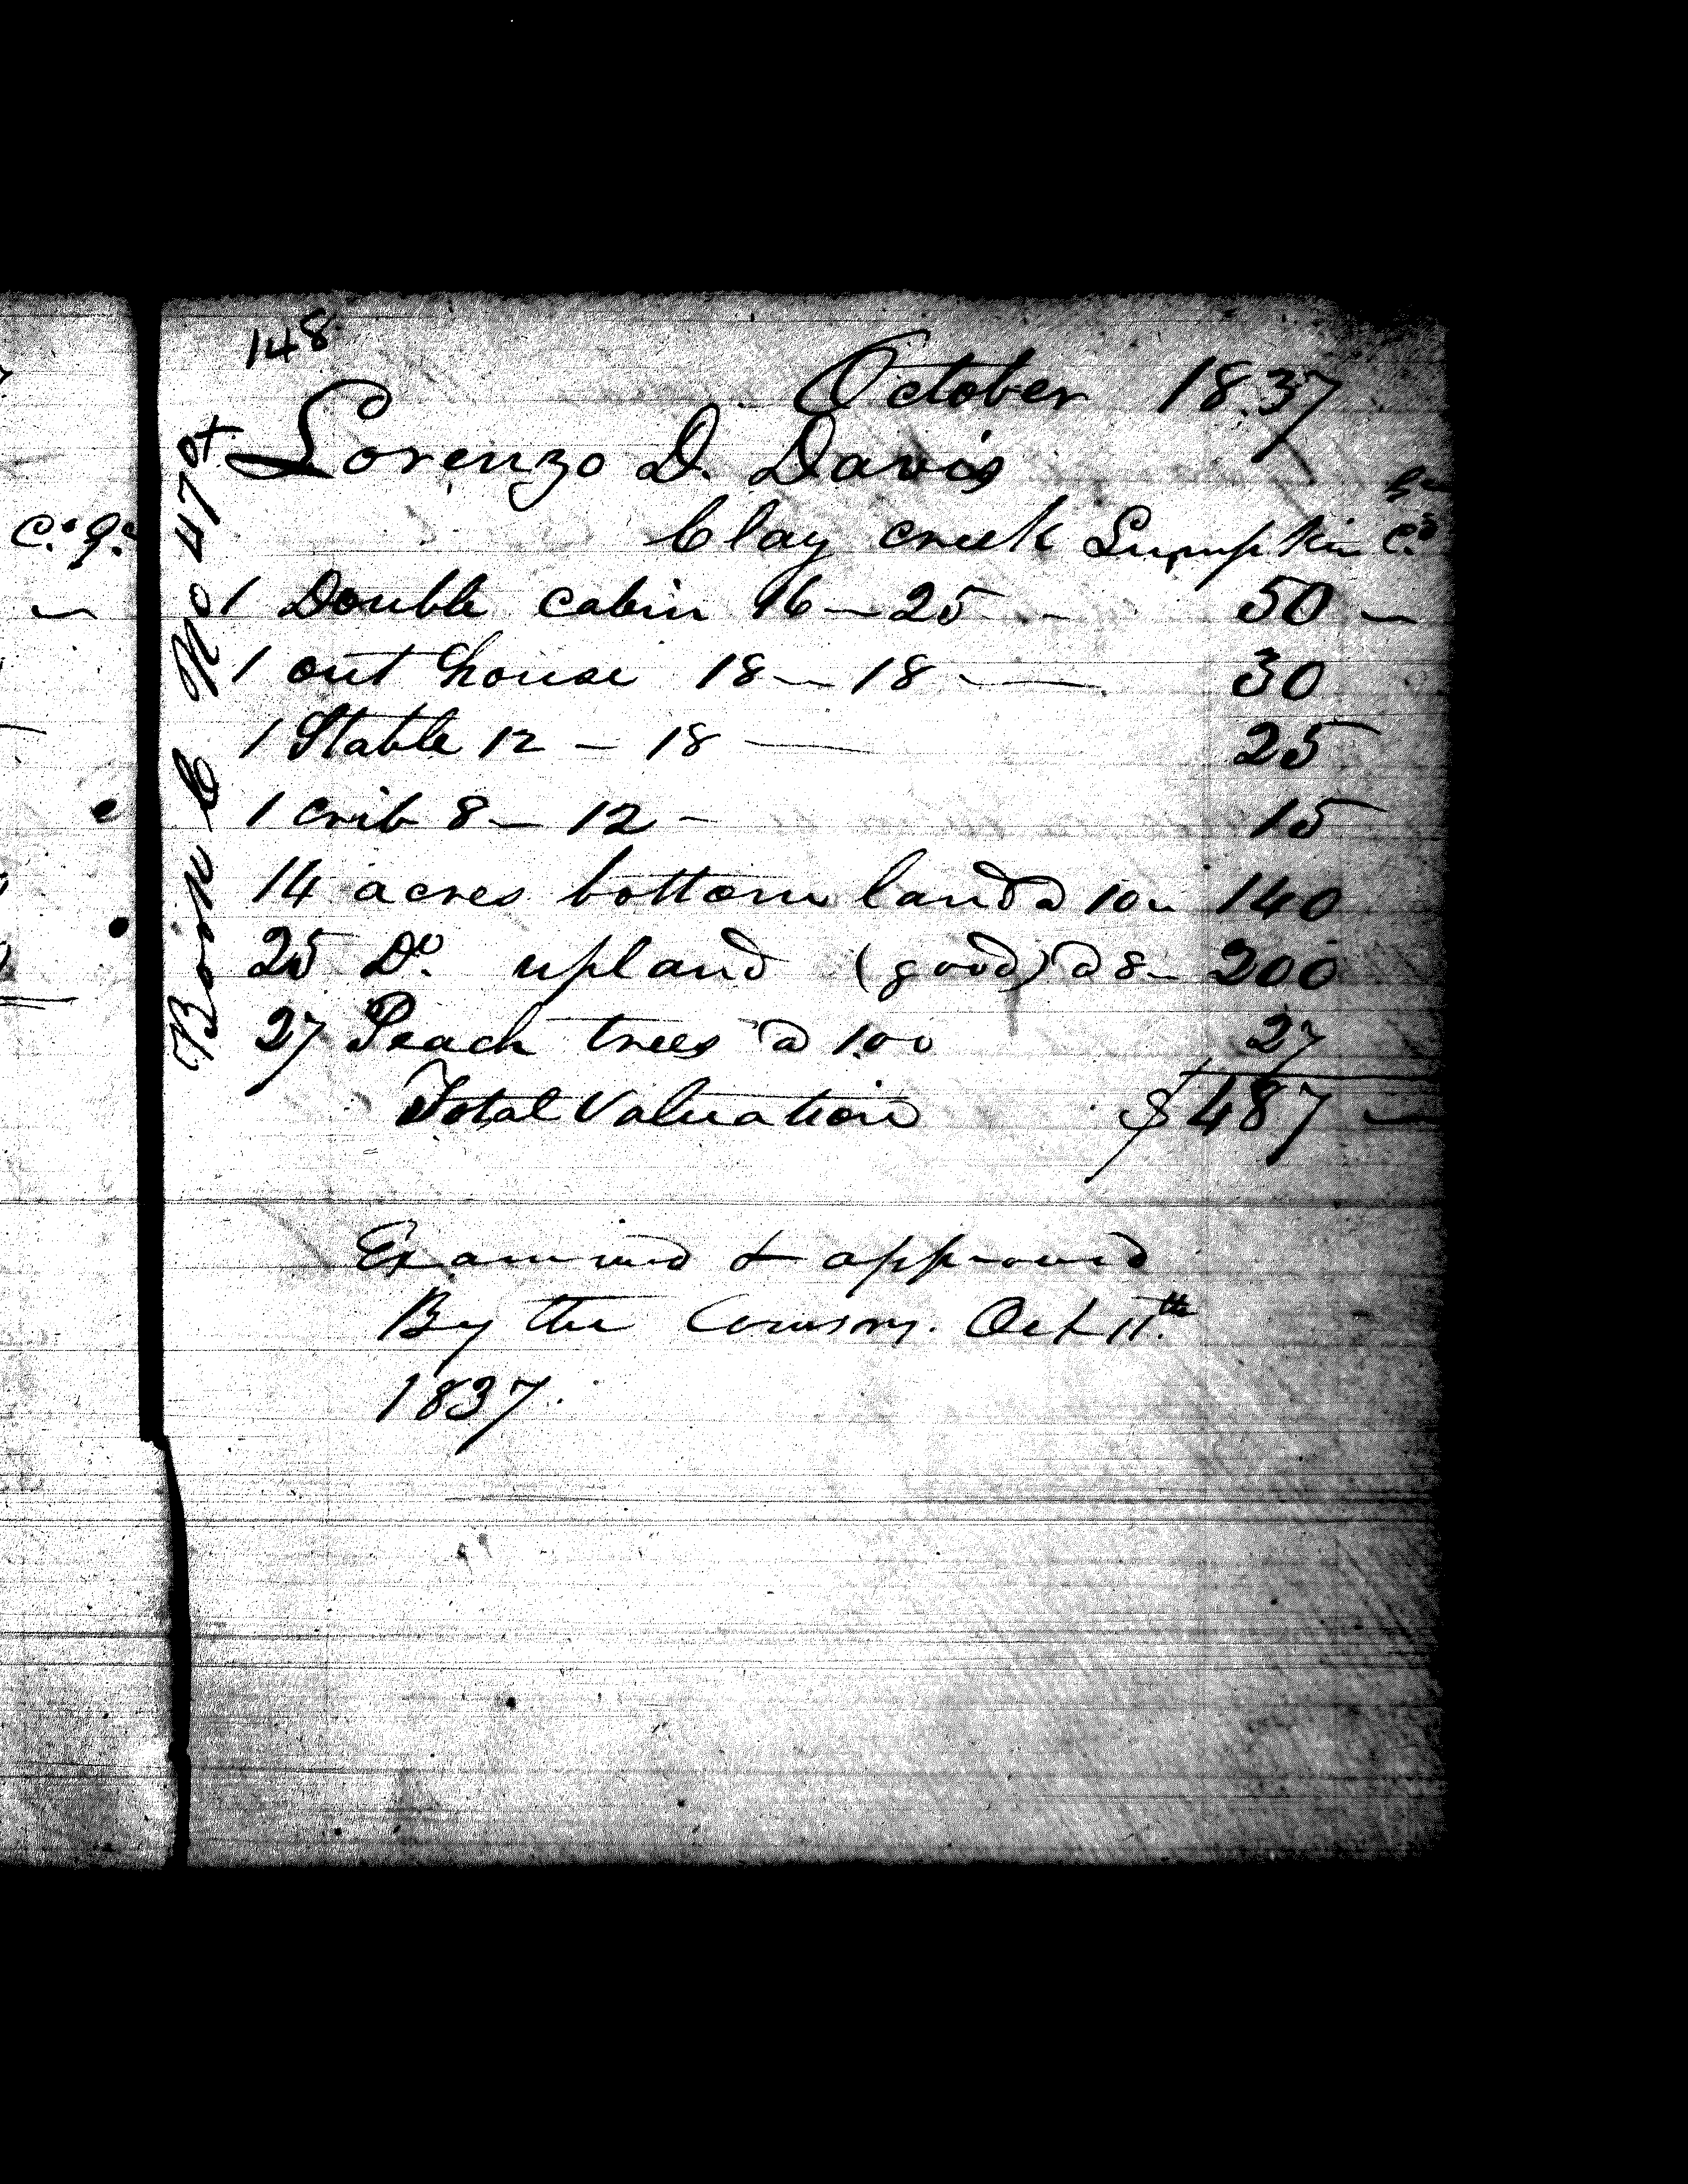 148
October 1837
Lorenzo D. Davis
Clay creek Lumpkin Co
1 Double cabin 16 — 25 - - 50 —
1 out house 18 — 18 — 30
1 Stable 12 — 18 — 25
1 crib 8 — 12 - 15
14 acres bottom land @ 10 - 140
25 Do. upland (good) @ 8 - 200
27 Peach trees @ 1.00 27
Total Valuation $487 —
Examined & approved
By the Comsnrs. Oct 11th
1837.
Book C No 47
Co. Ga